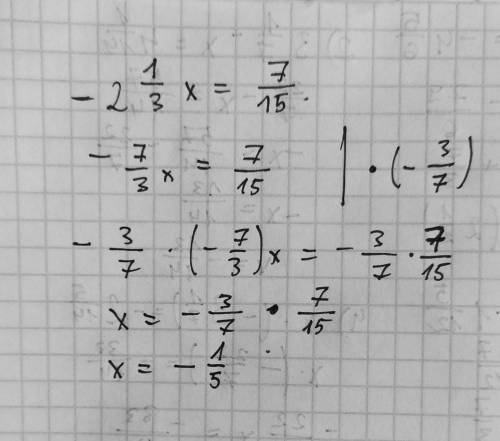 - 2 1/3 x = 7/15.
- 7/3 x = 7/15 | · (- 3/7)
- 3/7 · (- 7/3) x = - 3/7 · 7/15
x = - 3/7 · 7/15
x = - 1/5